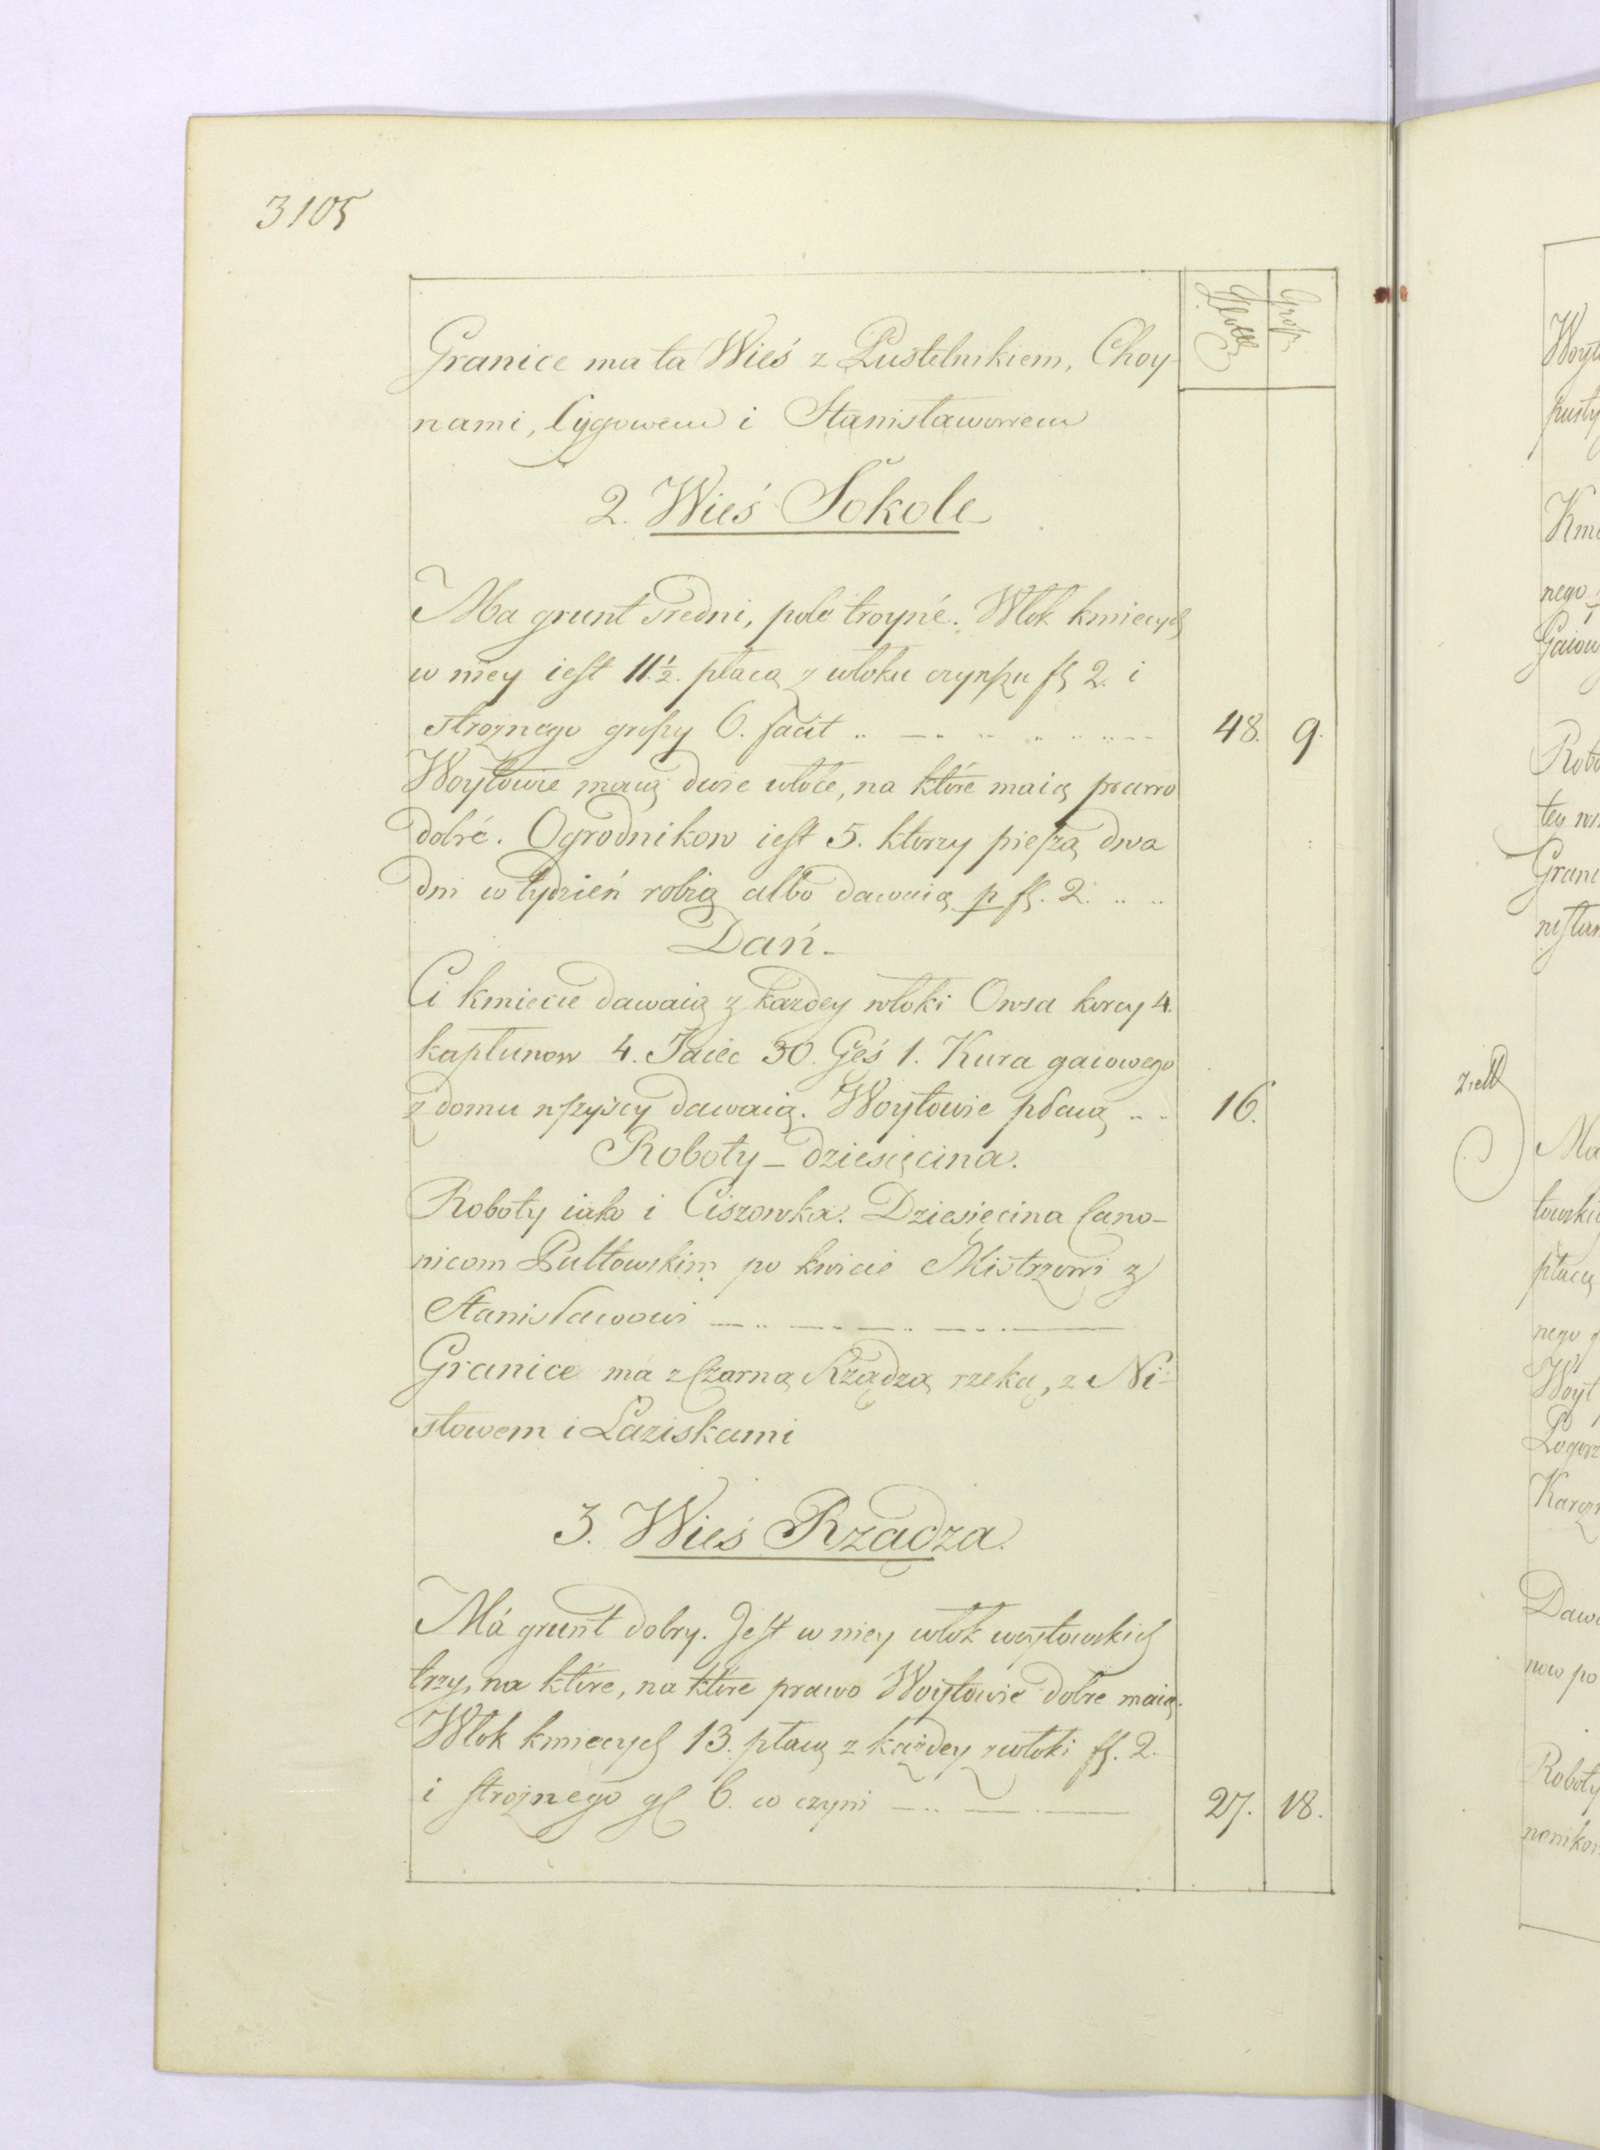 3105
Złotte Grosz
Granice ma ta Wieś z Pustelnikiem, Choy-
nami, Cygowem i Stanisławowem
2. Wieś Sokole
Ma grunt średni, pole troyné. Włok kmiecych
w niey iest 11 1/2. płacą z włoku czynszu fl 2. i
strożnego groszy 6. facit 48. 9.
Woytowie maią dwie włoce, na które maią prawo
dobré. Ogrodnikow iest 5. ktorzy pieszą dwa
dni w tydzień robią albo dawaią p fl. 2.
Dań.
Ci kmiecie dawaią z każdey włoki Owsa korcy 4.
kapłunow 4. Jaiec 30. Gęś 1. Kura gaiowego
z domu wszyscy dawaią. Woytowie płacą 16.
Roboty – dziesięcina.
Roboty iako i Ciszowka. Dziesięcina Cano-
nicom Pułtowskim po kwicie Mistrzowi z
Stanisławowi
Granice ma z Czarną Rządzą rzeką, z Ni-
stowem i Laziskami
3. Wieś Rządza.
Má grunt dobry. Jest w niey włok woytowskich
trzy, na które, na które prawo Woytowie dobre maią.
Włok kmiecych 13. płacą z każdey włoki fl. 2.
i strożnego gl 6. co czyni 27. 18.